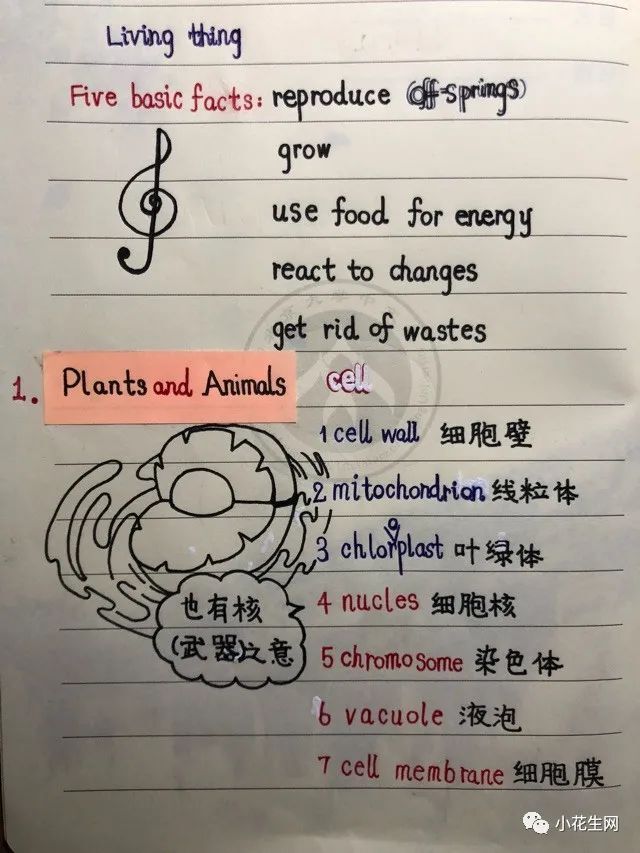 Living thing
Five basic facts: reproduce (off-springs)
grow
use food for energy
react to changes
get rid of wastes
1. Plants and Animals cell
1 cell wall 细胞壁
2 mitochondrion 线粒体
3 chloroplast 叶绿体
也有核
(武器)之意
4 nucles 细胞核
5 chromosome 染色体
6 vacuole 液泡
7 cell membrane 细胞膜
小花生网